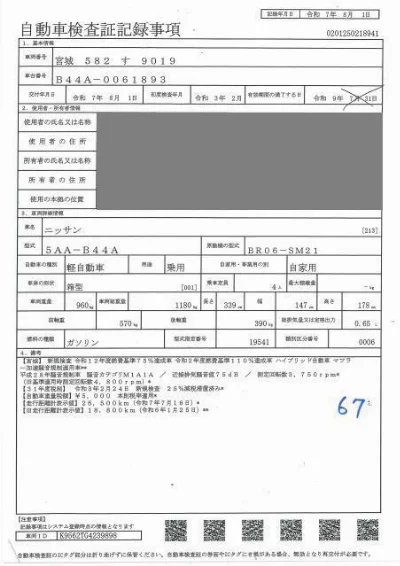 記録年月日 令和 7年 8月 1日
自動車検査証記録事項
0201250218941
1. 基本情報
車両番号 宮城 582 す 9019
車台番号 B44A-0061893
交付年月日 令和 7年 8月 1日 初度検査年月 令和 3年 2月 有効期間の満了する日 令和 9年 7月31日
2. 使用者・所有者情報
使用者の氏名又は名称
使用者の住所
所有者の氏名又は名称
所有者の住所
使用の本拠の位置
3. 車両詳細情報
車名 ニッサン [213]
型式 5AA-B44A 原動機の型式 BR06-SM21
自動車の種別 軽自動車 用途 乗用 自家用・事業用の別 自家用
車体の形状 箱型 [001] 乗車定員 4人 最大積載量 -kg
車両重量 960kg 車両総重量 1180kg 長さ 339cm 幅 147cm 高さ 178cm
前軸重 570kg 後軸重 390kg 総排気量又は定格出力 0.65L
燃料の種類 ガソリン 型式指定番号 19541 類別区分番号 0006
4. 備考
[宮城] 新規検査 令和12年度燃費基準75%達成車 令和2年度燃費基準110%達成車 ハイブリッド自動車 マフラ
ー加速騒音規制適用車**
平成28年騒音規制車 騒音カテゴリM1A1A / 近接排気騒音値75dB / 測定回転数3,750rpm*
(旧基準適用時測定回転数4,800rpm)*
[31年度税制] 令和3年2月24日 新規検査 25%減税措置済み*
[自動車重量税額] ¥5,000 本則税率適用*
[走行距離計表示値] 25,500km (令和7年7月16日)*
[旧走行距離計表示値] 18,800km (令和6年1月25日)**
67
[注意事項]
記録事項はシステム登録時点の情報となります
車両ID K9562TG4239898
自動車検査証のICタグ部分は折り曲げずに保管ください。自動車検査証の券面やICタグにき損がある場合、無効となり再交付が必要です。